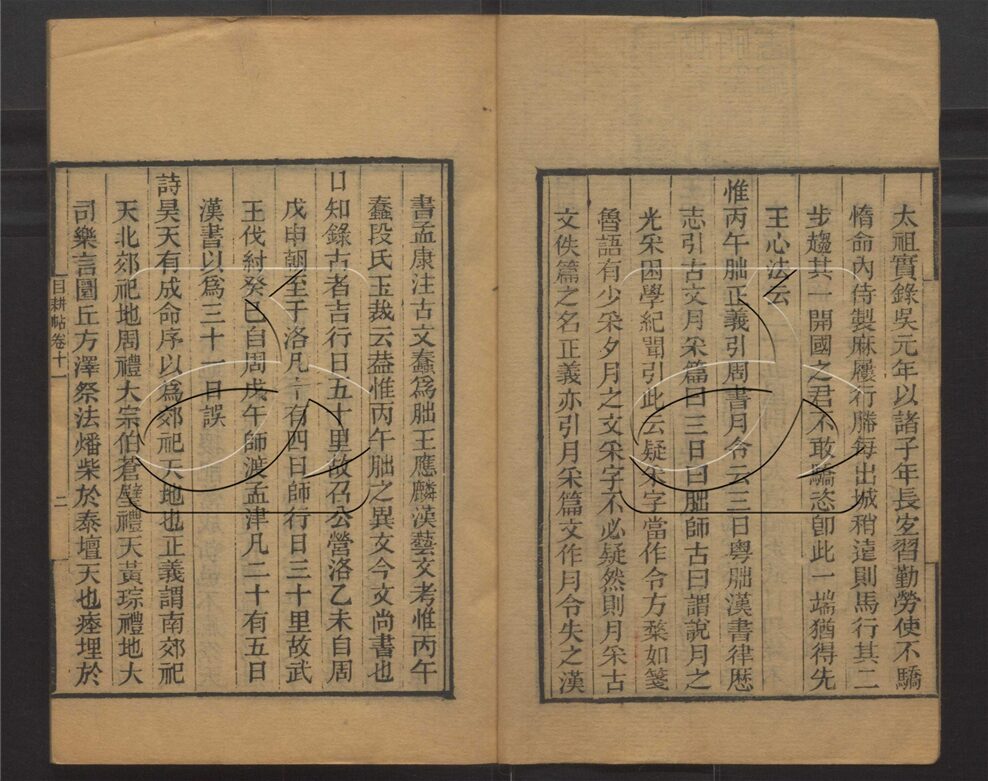 太祖實錄吳元年以諸子年長宐習勤勞使不驕
惰命內侍製麻屨行縢每出城稍遠則馬行其二
步趨其一開國之君不敢驕恣卽此一端猶得先
王心法云
惟丙午朏正義引周書月令云三日粤朏漢書律厯
志引古文月采篇曰三日曰朏師古曰謂說月之
光采困學紀聞引此云疑采字當作令方棻如箋
魯語有少采夕月之文采字不必疑然則月采古
文佚篇之名正義亦引月采篇文作月令失之漢
書孟康注古文蠢爲朏王應麟漢藝文考惟丙午
蠢段氏玉裁云葢惟丙午朏之異文今文尚書也
日知錄古者吉行日五十里故召公營洛乙未自周
戊申朝至于洛凡十有四日師行日三十里故武
王伐紂癸巳自周戊午師渡孟津凡二十有五日
漢書以爲三十一日誤
詩昊天有成命序以爲郊祀天地也正義謂南郊祀
天北郊祀地周禮大宗伯蒼璧禮天黃琮禮地大
司樂言圜丘方澤祭法燔柴於泰壇天也瘞埋於
目耕帖卷十
二